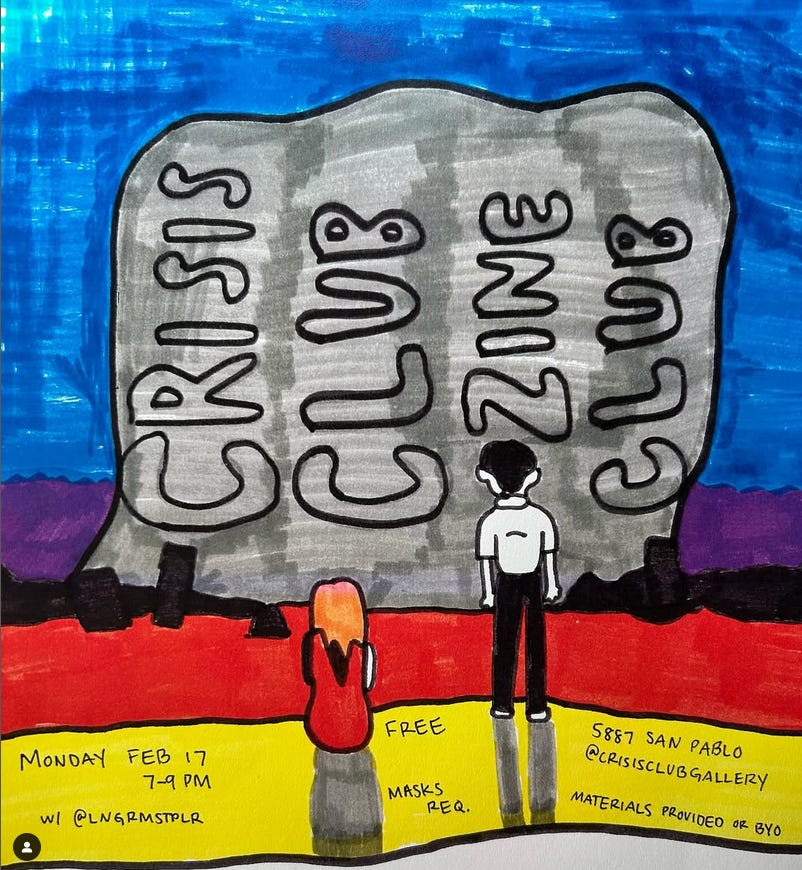 CRISIS
CLUB
ZINE
CLUB
MONDAY FEB 17
7-9 PM
W/ @LNGRMSTPLR
FREE
MASKS
REQ.
5887 SAN PABLO
@CRISISCLUBGALLERY
MATERIALS PROVIDED OR BYO